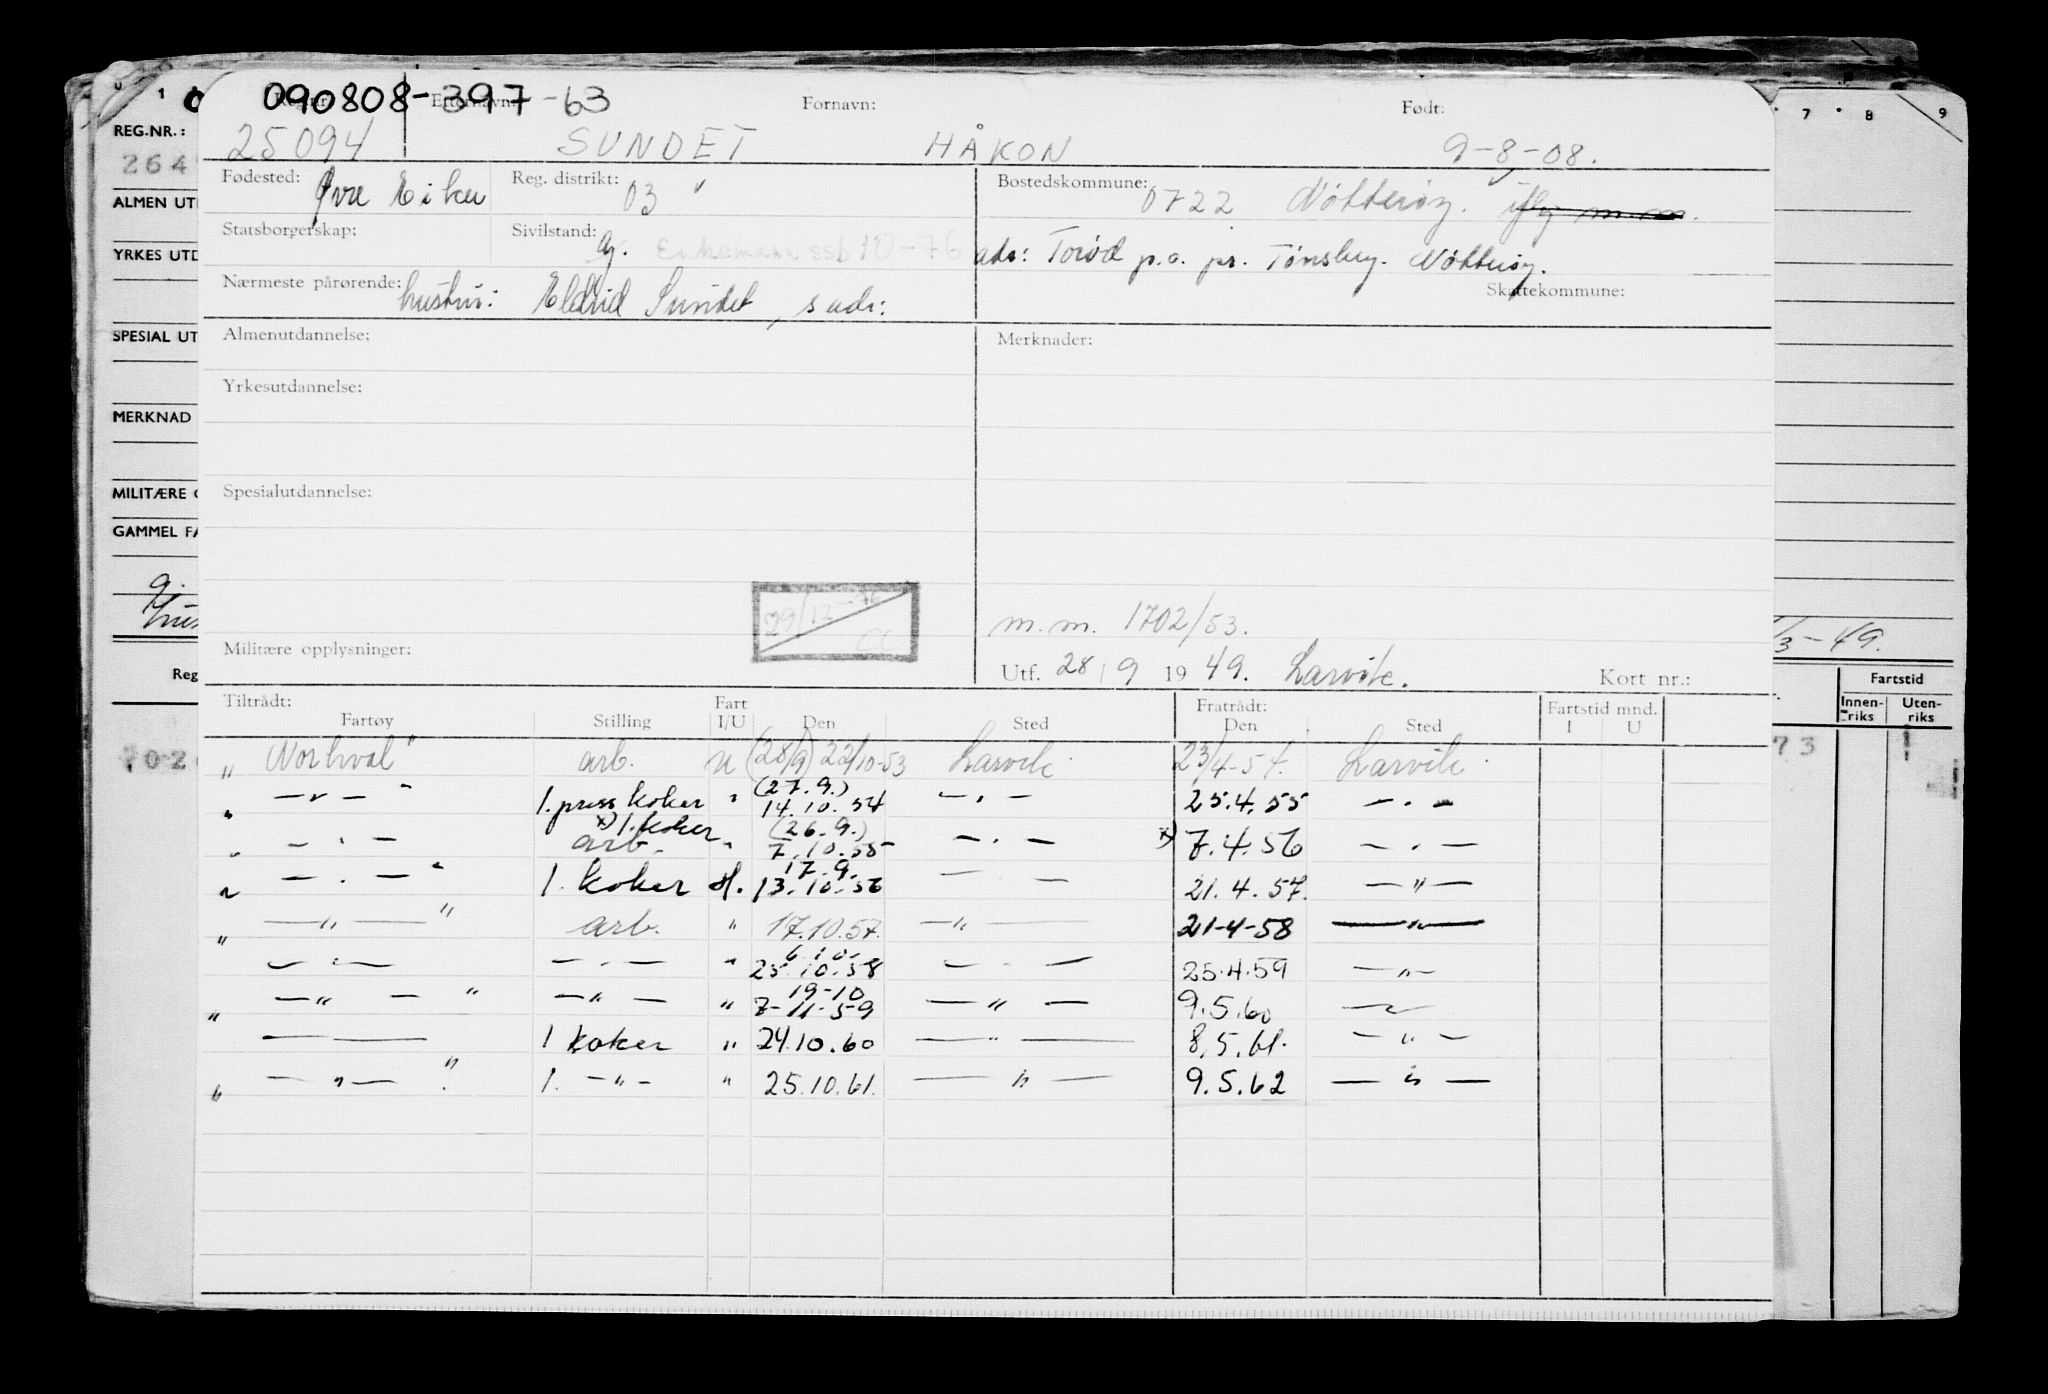 090808-397-63
Reg.nr.: Etternavn: Fornavn: Født:
25094 SUNDET HÅKON 9-8-08.
Fødested: Øvre Eiker Reg. distrikt: 03 Bostedskommune: 0722 Nøtterøy. iflg m.m.
Statsborgerskap: Sivilstand: g. Enkemann ssb 10-76 adr: Torød p.o. pr. Tønsberg. Nøtterøy.
Nærmeste pårørende: hustru: Eldrid Sundet, s adr: Skattekommune:
Almenutdannelse: Merknader:
Yrkesutdannelse:
Spesialutdannelse:
29/12-76
m.m. 1702/53.
Militære opplysninger: Utf. 28/9 1949. Larvik. Kort nr.:
Tiltrådt: Fart Fratrådt: Fartstid mnd.
Fartøy Stilling I/U Den Sted Den Sted I U
"Norhval" arb. u (28/9) 22/10-53 Larvik. 23/4-54. Larvik.
" — " — " 1. press koker " (27.9.) 14.10.54 — " — 25.4.55 — " —
" — " — x) 1. koker arb. " (26.9.) 7.10.55 — " — x) 7.4.56 — " —
" — " — " 1. koker H. 17.9. 13.10.56 — — 21.4.57. — " —
" — " — " arb. " 17.10.57. — " — 21-4-58 — " —
— " — — " — " 6.10. 25.10.58 — " — 25.4.59 — " —
" — " — " — " — " 19-10 7-11-59 — " — 9.5.60 —
— — 1 koker " 24.10.60 — " — 8.5.61. — " —
" — " — " 1. — " — " 25.10.61. — " — 9.5.62 — " —
0 1
REG.NR.:
264
ALMEN UT
YRKES UTD
SPESIAL UT
MERKNAD
MILITÆRE
GAMMEL FA
g.
Reg
702
7 8 9
/3-49.
Fartstid
Innen-riks Uten-riks
73 1